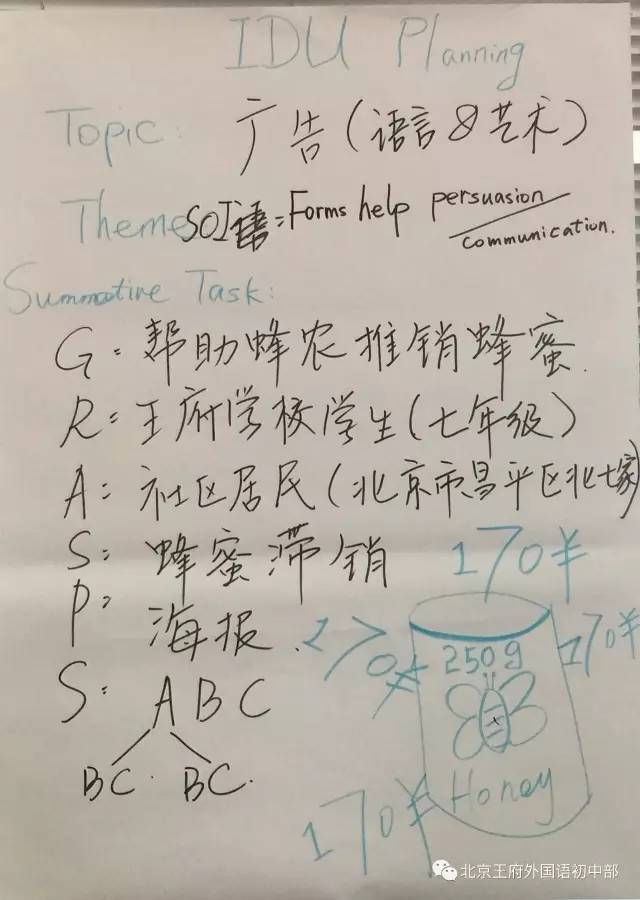 IDU Planning
Topic: 广告(语言&艺术)
Theme SOI = Forms help persuasion
communication.
Summative Task:
G: 帮助蜂农推销蜂蜜.
R: 王府学校学生(七年级)
A: 社区居民(北京市昌平区北七家)
S: 蜂蜜滞销
P: 海报.
S: ABC
BC. BC.
170¥
170¥
170¥
250g
Honey
170¥
北京王府外国语初中部